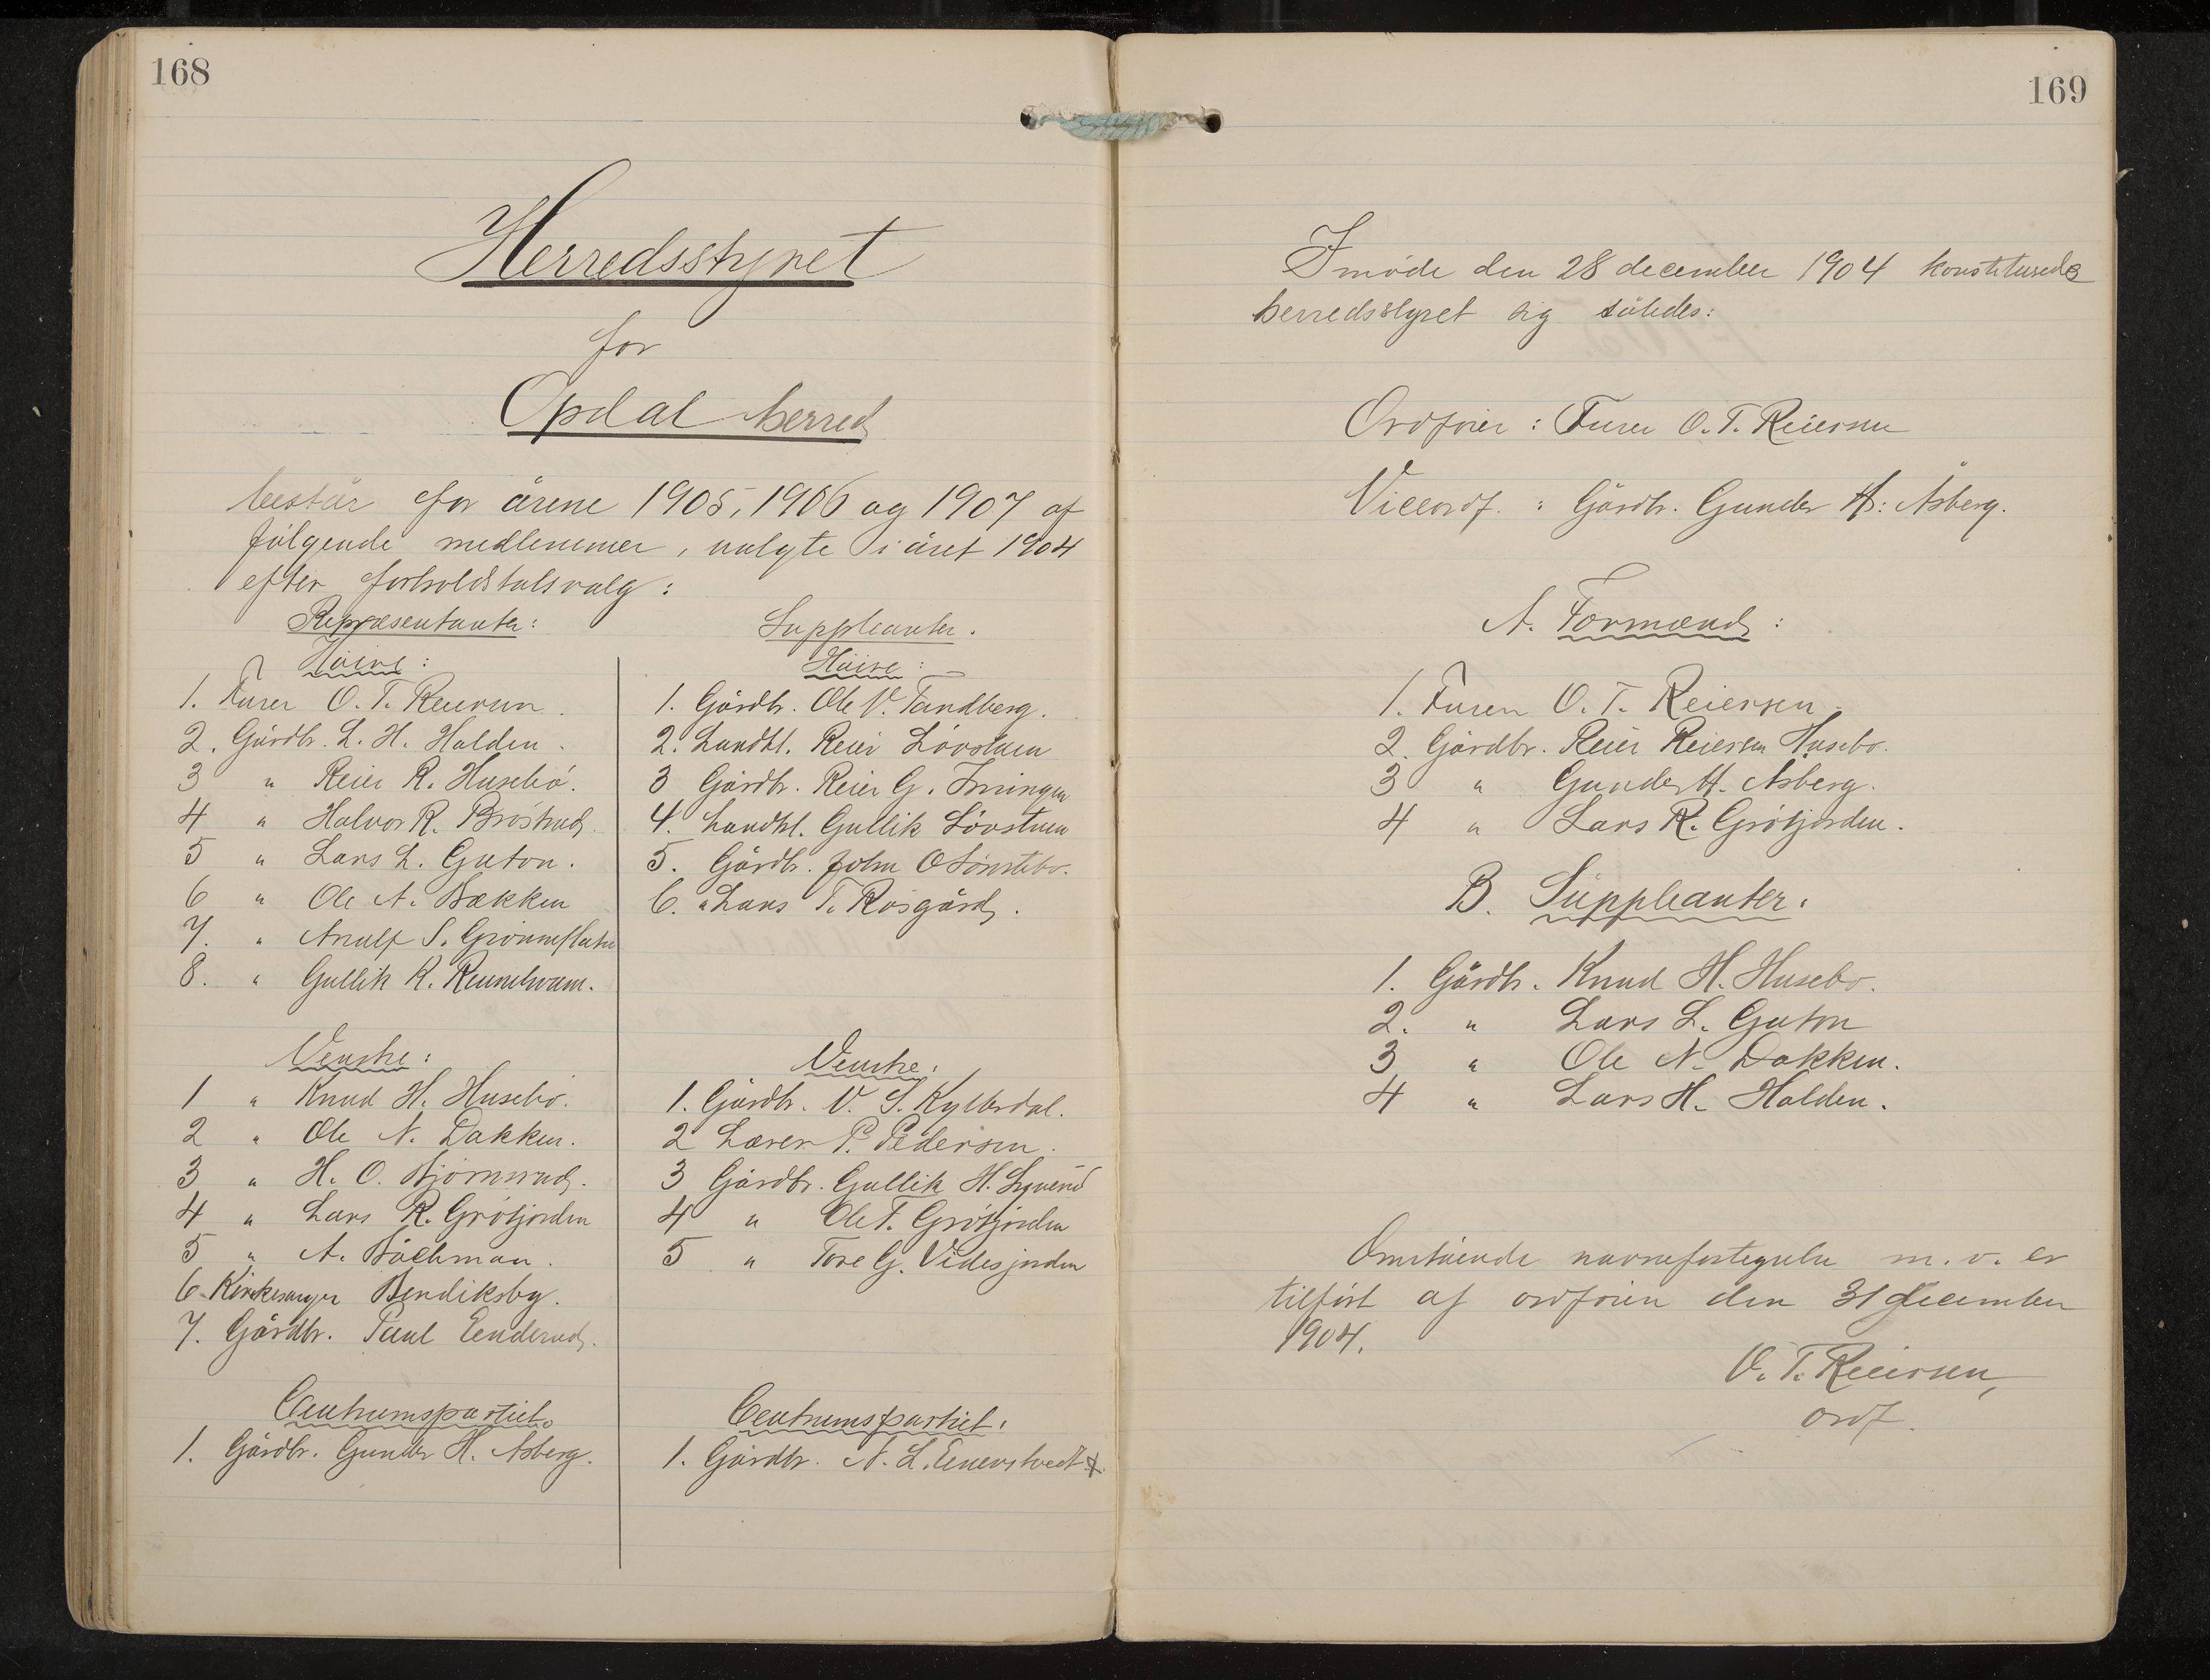 168
Herredsstyret
for
Opdal herred
består for årene 1905, 1906 og 1907 af
følgende medlemmer, valgte i året 1904
efter forholdstalsvalg:
Repræsentanter:
Høire:
1. Furer O. T. Reiersen.
2. Gårdbr. L. H. Halden.
3 " Reier R. Husebø.
4 " Halvor R. Brøstrud.
5 " Lars L. Guton.
6 " Ole A. Bækken
7. " Arnulf S.
8. " Gullik K.
Venstre:
1 " Knud H. Husebø.
2 " Ole N. Dakken.
3 " H. O. Bjørnsrud.
4 " Lars R. Grøtjorden
5 " A. Båchman.
6. Kirkesanger Bendiksby.
7. Gårdbr. Paul Eenderud.
Centrumspartiet.
1. Gårdbr. Gunder H. Åsberg.
Suppleanter.
Høire:
1. Gårdbr. Ole V. Tandberg.
2. Landhl. Reier Løvstuen
3 Gårdbr. Reier G.
4. Landhl. Gullik Løvstuen
5. Gårdbr. John O Tønstebø.
6. " Lars T. Rosgård.
Venstre:
1. Gårdbr. V. S.
2 Lærer P. Pedersen.
3 Gårdbr. Gullik H.
4 " Ole T. Grøtjorden
5 " Tore G. Videsjorden
Centrumspartiet.
1. Gårdbr. N. L. Enerstvedt
169
I møde den 28 december 1904 konstituerede
herredsstyret sig således:
Ordfører: Furer O. T. Reiersen
Viceordf. " Gårdbr. Gunder H. Åsberg.
A. Formænd:
1. Furer O. T. Reiersen.
2. Gårdbr. Reier Reiersen Husebø.
3 " Gunder H. Åsberg.
4 " Lars R. Grøtjorden.
B. Suppleanter.
1. Gårdbr. Knud H. Husebø.
2. " Lars L. Guton
3 " Ole N. Dakken.
4 " Lars H. Halden.
Omstående navnefortegnelse m. v. er
tilført af ordføreren den 31 december
1904.
O. T. Reiersen,
ordf.